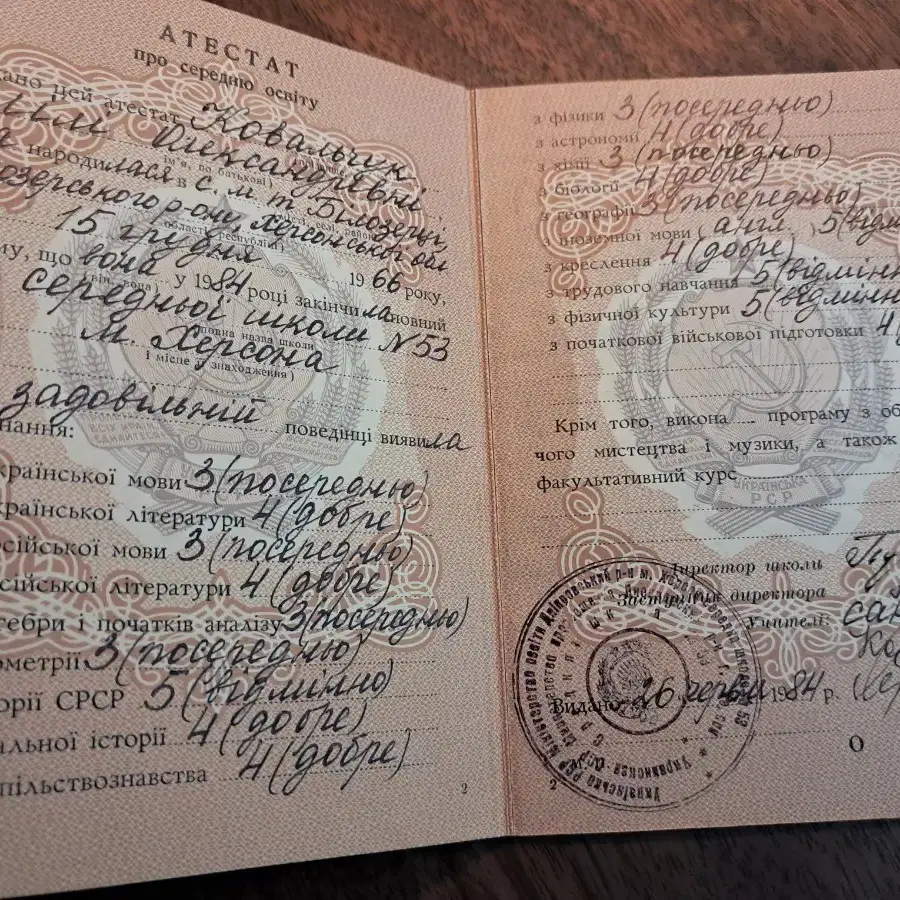 АТЕСТАТ
про середню освіту
дано цей атестат Ковальчук
Олександрівні
(ім'я, по батькові)
народилася в с. м. т. Білозерці,
Херсонської обл
області, республіки)
15 грудня 1966 року,
му, що вона у 1984 році закінчила повний
(він, вона)
середньої школи N 53
(повна назва школи
м. Херсона
і місце її знаходження)
задовільний поведінці виявила
нання:
країнської мови 3 (посередньо)
країнської літератури 4 (добре)
осійської мови 3 (посередньо)
сійської літератури 4 (добре)
гебри і початків аналізу 3 (посередньо)
ометрії 3 (посередньо)
орії СРСР 5 (відмінно)
альної історії 4 (добре)
пільствознавства 4 (добре)
2
з фізики 3 (посередньо)
з астрономії 4 (добре)
з хімії 3 (посередньо)
з біології 4 (добре)
з географії 3 (посередньо)
з іноземної мови (англ.) 5 (відмін
з креслення 4 (добре)
з трудового навчання 5 (відмінн
з фізичної культури 5 (відмінно
з початкової військової підготовки 4 (
Крім того, викона програму з об
чого мистецтва і музики, а також
факультативний курс
УКРАЇНСЬКА
РСР
Директор школи
Заступник директора
Учителі:
Видано 26 червня 1984 р.
О
2